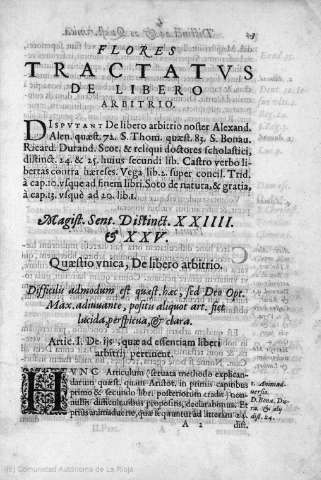 FLORES
TRACTATVS
DE LIBERO
ARBITRIO.
DISPVTANT De libero arbitrio noster Alexand.
Alen. quæst. 72. S. Thom. quæst. 83. S. Bonau.
Ricard. Durand. Scot. & reliqui doctores scholastici,
distinct. 24. & 25. huius secundi lib. Castro verbo li-
bertas contra hæreses. Vega lib. 2. super concil. Trid.
à cap. 10. vsque ad finem libri. Soto de natura, & gratia,
à cap. 15. vsque ad 20. lib. 1.
Magist. Sent. Distinct. XXIIII.
& XXV.
Quæstio vnica, De libero arbitrio.
Difficilis admodum est quæst. hæc, sed Deo Opt.
Max. adiuuante, positis aliquot art. fiet
lucida, perspicua, & clara.
Artic. I. De ijs, quæ ad essentiam liberi
arbitrij pertinent.
HVNC Articulum (seruata methodo explican-
darum quæst. quam Aristot. in primis capitibus
primo & secundo libr. posteriorum tradit) non-
nullis difficultatibus propositis, declarabimus. Et
primo animaduerte, quæ sequuntur ad litteram
dist.
1. Animad-
uersio.
D. Bona. Du-
ra. & alij
dist. 24.
II. Pars.
A 2
(c) Comunidad Autónoma de La Rioja